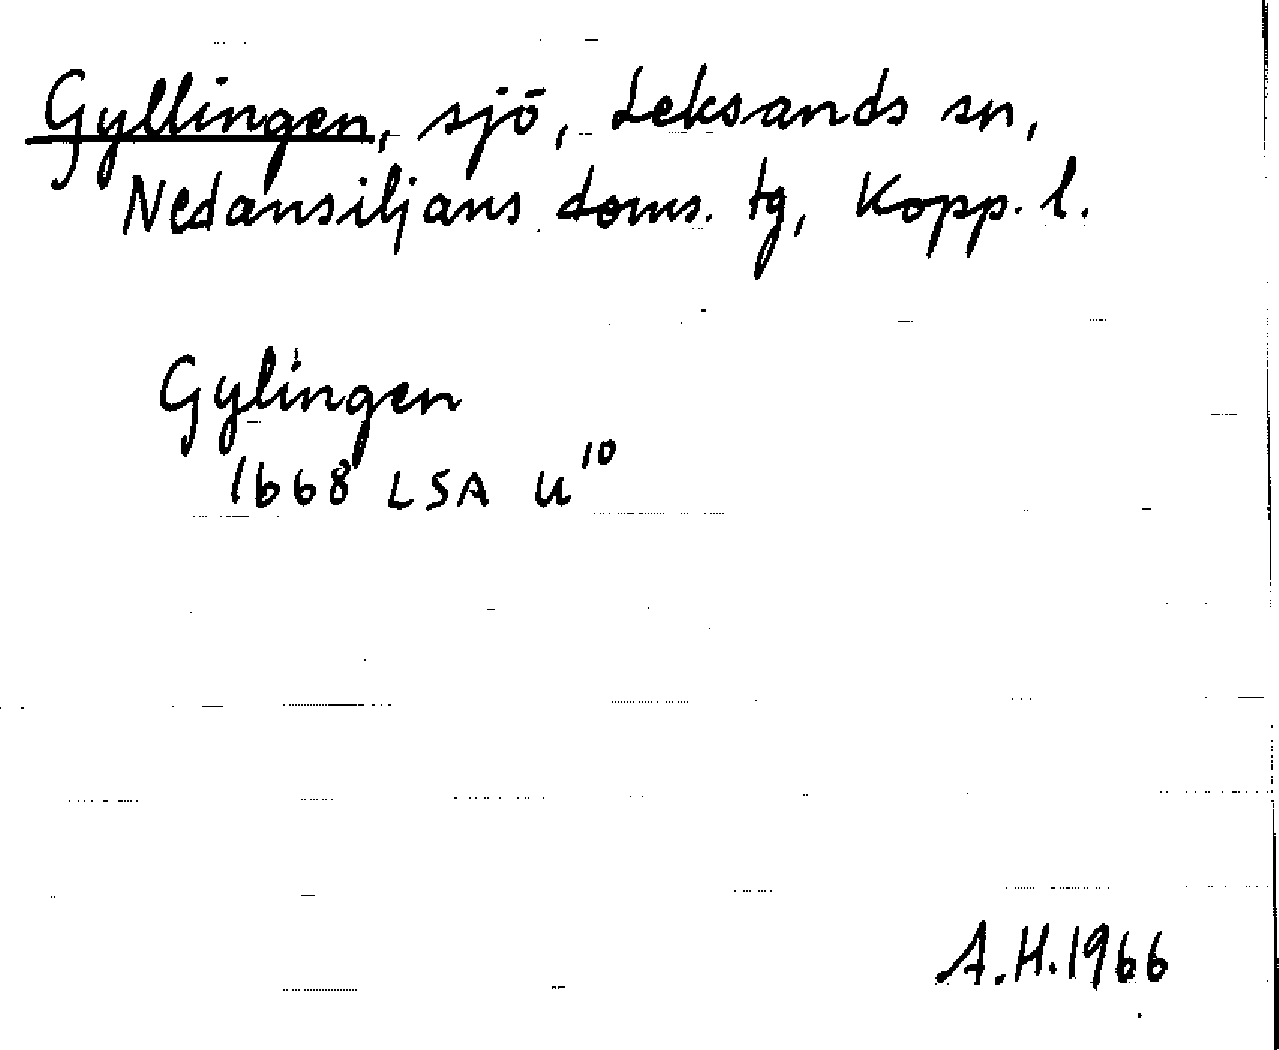 Gyllingen, sjö, Leksands sn,
Nedansiljans doms. tg, Kopp. l.
Gylingen
1668 LSA U¹⁰
A.H.1966